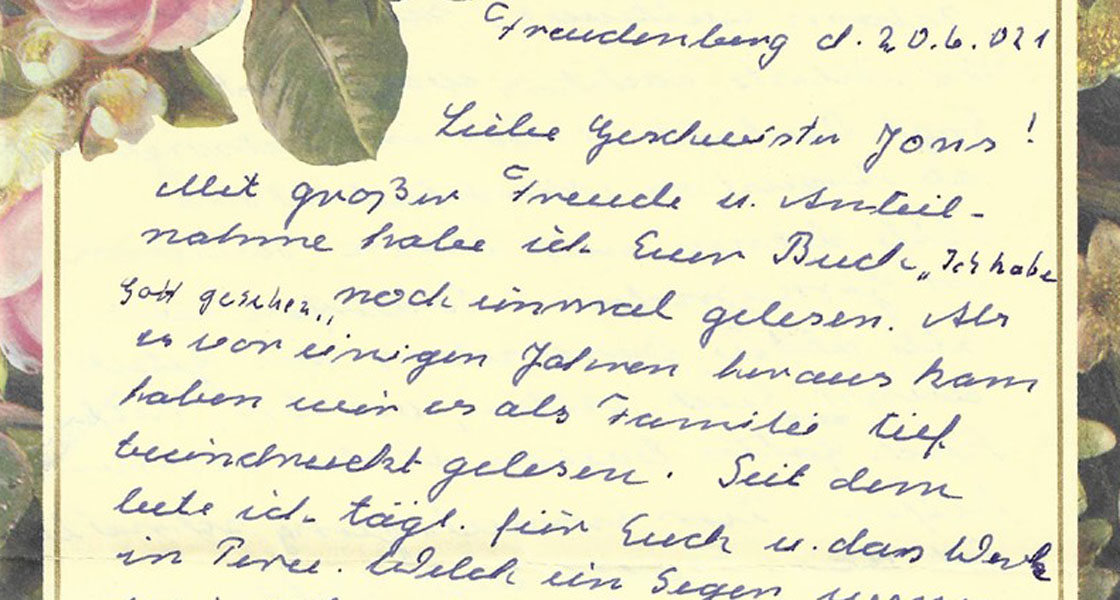 Freudenberg d. 20.6.021
Liebe Geschwister Jons!
Mit großer Freude u. Anteil-
nahme habe ich Euer Buch „Ich habe
Gott gesehen„ noch einmal gelesen. Als
es vor einigen Jahren heraus kam
haben wir es als Familie tief
beeindruckt gelesen. Seit dem
bete ich tägl. für Euch u. das Werk
in Peru. Welch ein Segen